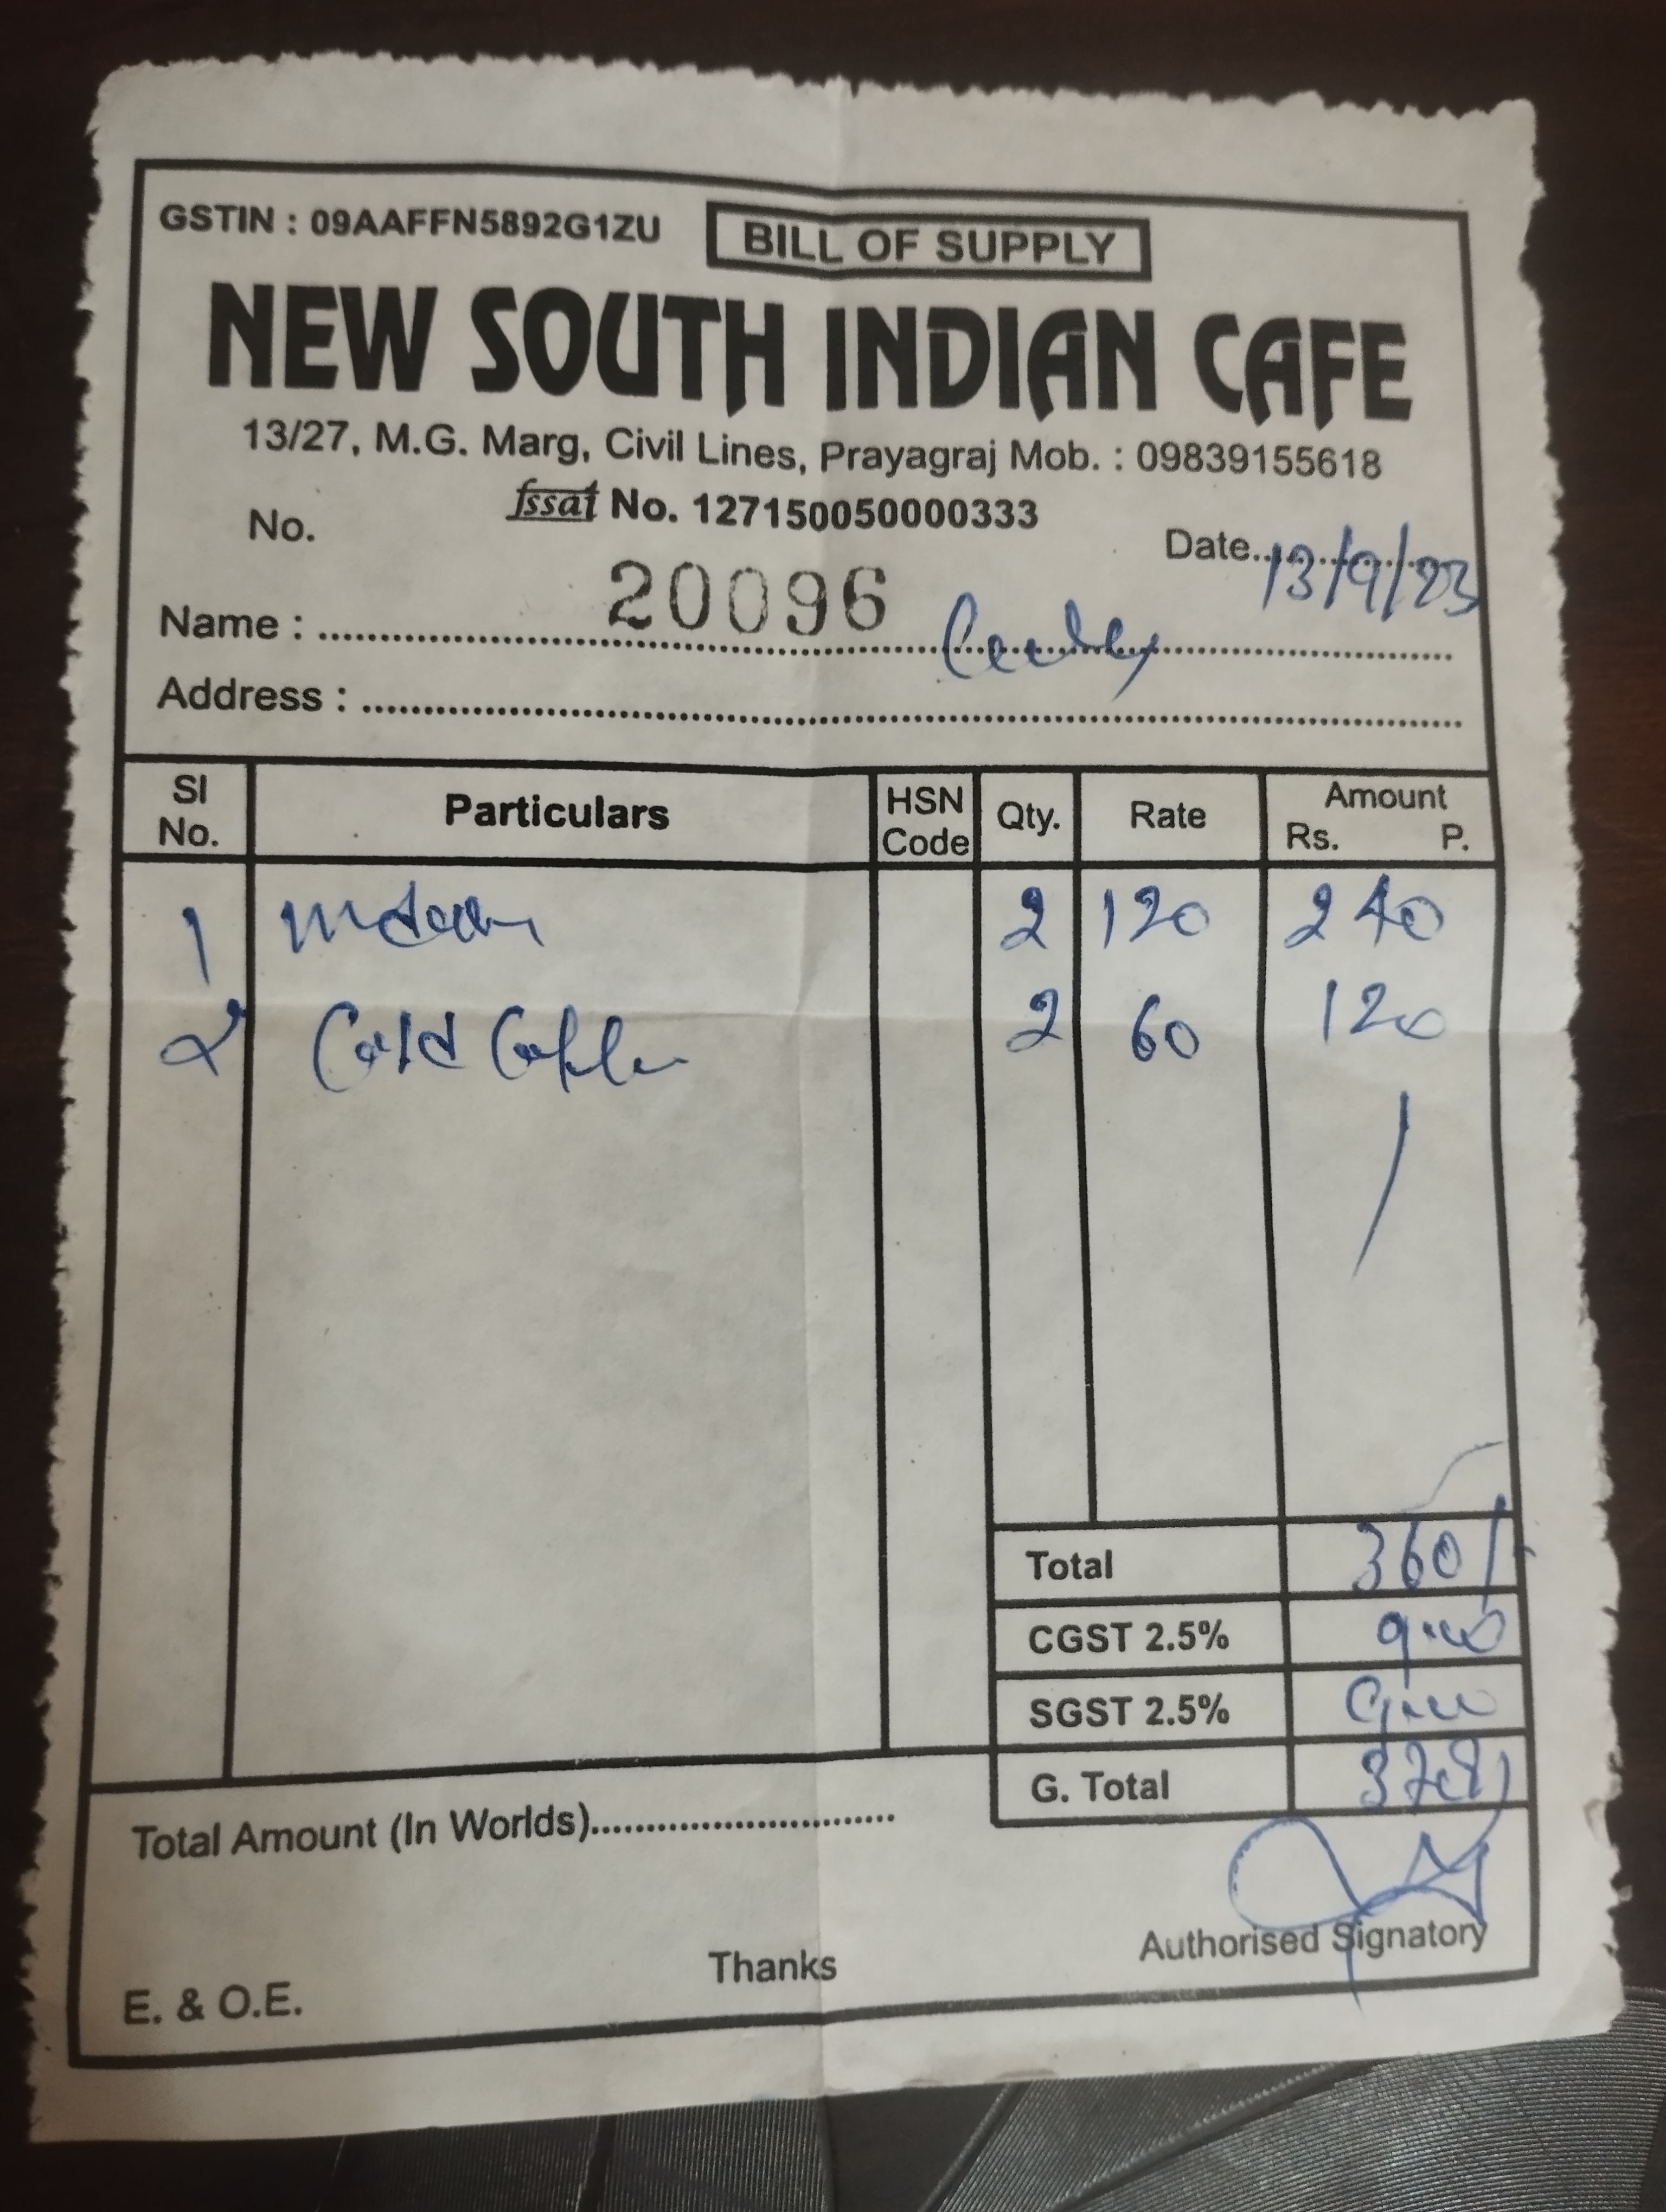 GSTIN : 09AAFFN5892G1ZU BILL OF SUPPLY
NEW SOUTH INDIAN CAFE
13/27, M.G. Marg, Civil Lines, Prayagraj Mob. : 09839155618
fssai No. 127150050000333
No. 20096 Date 13/9/23
Name :
Address :
Sl No. Particulars HSN Code Qty. Rate Amount Rs. P.
1 2 120 240
2 Cold Coffee 2 60 120
Total 360/-
CGST 2.5% 9.00
SGST 2.5% 9.00
G. Total 378/
Total Amount (In Worlds)
Authorised Signatory
Thanks
E. & O.E.